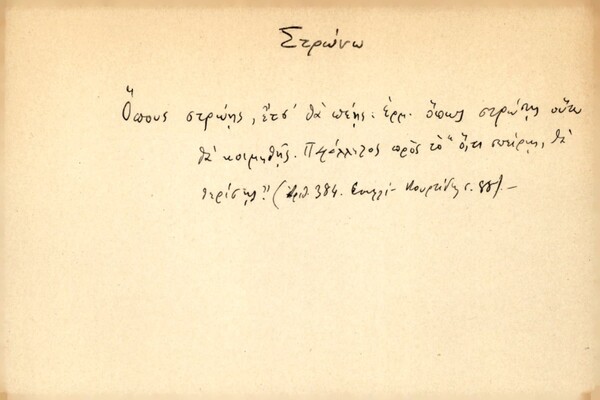 Στρώνω
Ὅπους στρώῃς, ἔτσ' θὰ πέῃς: ἑρμ. ὅπως στρώσῃς οὕτω
θὰ κοιμηθῇς. Παράλληλος πρὸς τὸ "ὅ,τι σπείρῃς, θὰ
θερίσῃς" (ἀριθ. 384. Κουρτίδης σ. 88).—